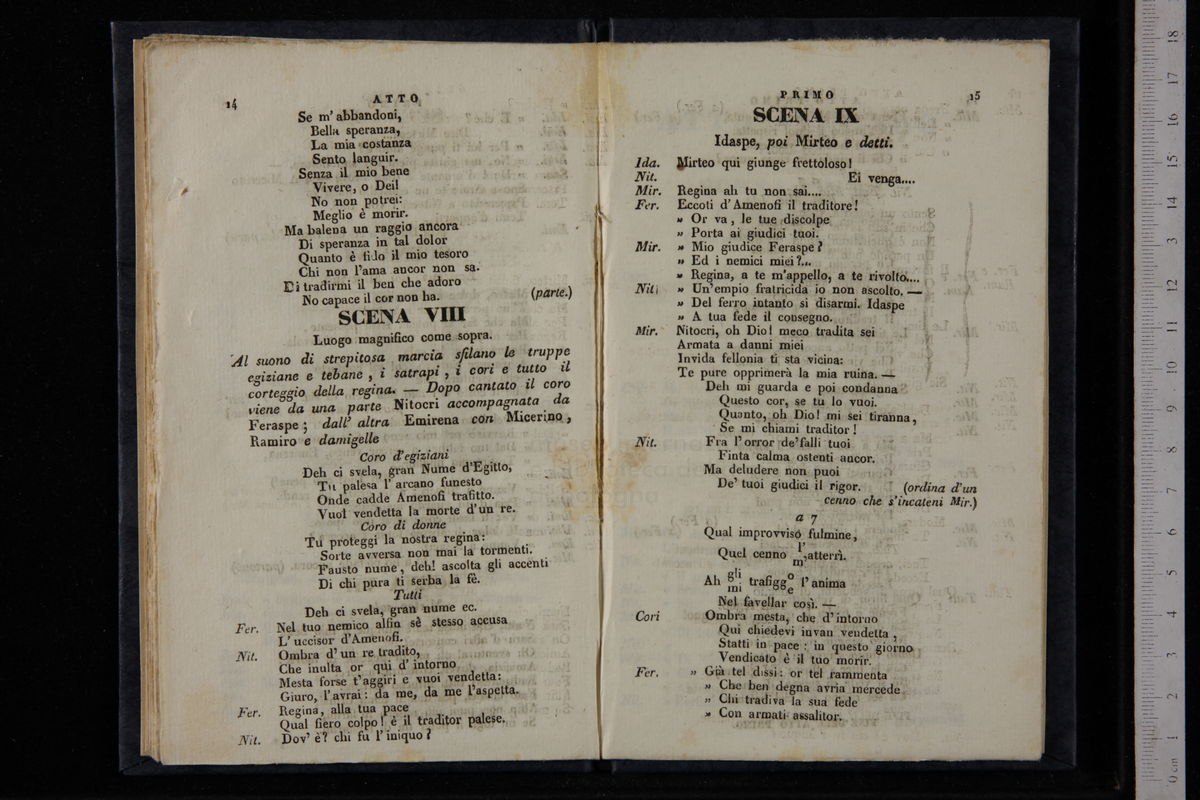 14
ATTO
Se m' abbandoni,
Bella speranza,
La mia costanza
Sento languir.
Senza il mio bene
Vivere, o Dei!
No non potrei:
Meglio è morir.
Ma balena un raggio ancora
Di speranza in tal dolor
Quanto è fido il mio tesoro
Chi non l'ama ancor non sa.
Di tradirmi il ben che adoro
No capace il cor non ha. (parte.)
SCENA VIII
Luogo magnifico come sopra.
Al suono di strepitosa marcia sfilano le truppe
egiziane e tebane, i satrapi, i cori e tutto il
corteggio della regina. — Dopo cantato il coro
viene da una parte Nitocri accompagnata da
Feraspe; dall' altra Emirena con Micerino,
Ramiro e damigelle
Coro d'egiziani
Deh ci svela, gran Nume d'Egitto,
Tu palesa l' arcano funesto
Onde cadde Amenofi trafitto.
Vuol vendetta la morte d'un re.
Coro di donne
Tu proteggi la nostra regina:
Sorte avversa non mai la tormenti.
Fausto nume, deh! ascolta gli accenti
Di chi pura ti serba la fè.
Tutti
Deh ci svela, gran nume ec.
Fer. Nel tuo nemico alfin sè stesso accusa
L' uccisor d'Amenofi.
Nit. Ombra d' un re tradito,
Che inulta or qui d' intorno
Mesta forse t'aggiri e vuoi vendetta:
Giuro, l'avrai: da me, da me l'aspetta.
Fer. Regina, alla tua pace
Qual fiero colpo! è il traditor palese.
Nit. Dov' è? chi fu l' iniquo?
PRIMO
15
SCENA IX
Idaspe, poi Mirteo e detti.
Ida. Mirteo qui giunge frettoloso!
Nit. Ei venga....
Mir. Regina ah tu non sai....
Fer. Eccoti d'Amenofi il traditore!
» Or va, le tue discolpe
» Porta ai giudici tuoi.
Mir. » Mio giudice Feraspe?
» Ed i nemici miei?...
» Regina, a te m'appello, a te rivolto....
Nit. » Un'empio fratricida io non ascolto. —
» Del ferro intanto si disarmi. Idaspe
» A tua fede il consegno.
Mir. Nitocri, oh Dio! meco tradita sei
Armata a danni miei
Invida fellonia ti sta vicina:
Te pure opprimerà la mia ruina. —
Deh mi guarda e poi condanna
Questo cor, se tu lo vuoi.
Quanto, oh Dio! mi sei tiranna,
Se mi chiami traditor!
Nit. Fra l'orror de'falli tuoi
Finta calma ostenti ancor.
Ma deludere non puoi
De' tuoi giudici il rigor. (ordina d'un
cenno che s'incateni Mir.)
a 7
Qual improvviso fulmine,
Quel cenno l' m' atterrì.
Ah gli mi trafigg o e l' anima
Nel favellar così. —
Cori Ombra mesta, che d'intorno
Qui chiedevi invan vendetta,
Statti in pace: in questo giorno
Vendicato è il tuo morir.
Fer. » Già tel dissi: or tel rammenta
» Che ben degna avria mercede
» Chi tradiva la sua fede
» Con armati assalitor.